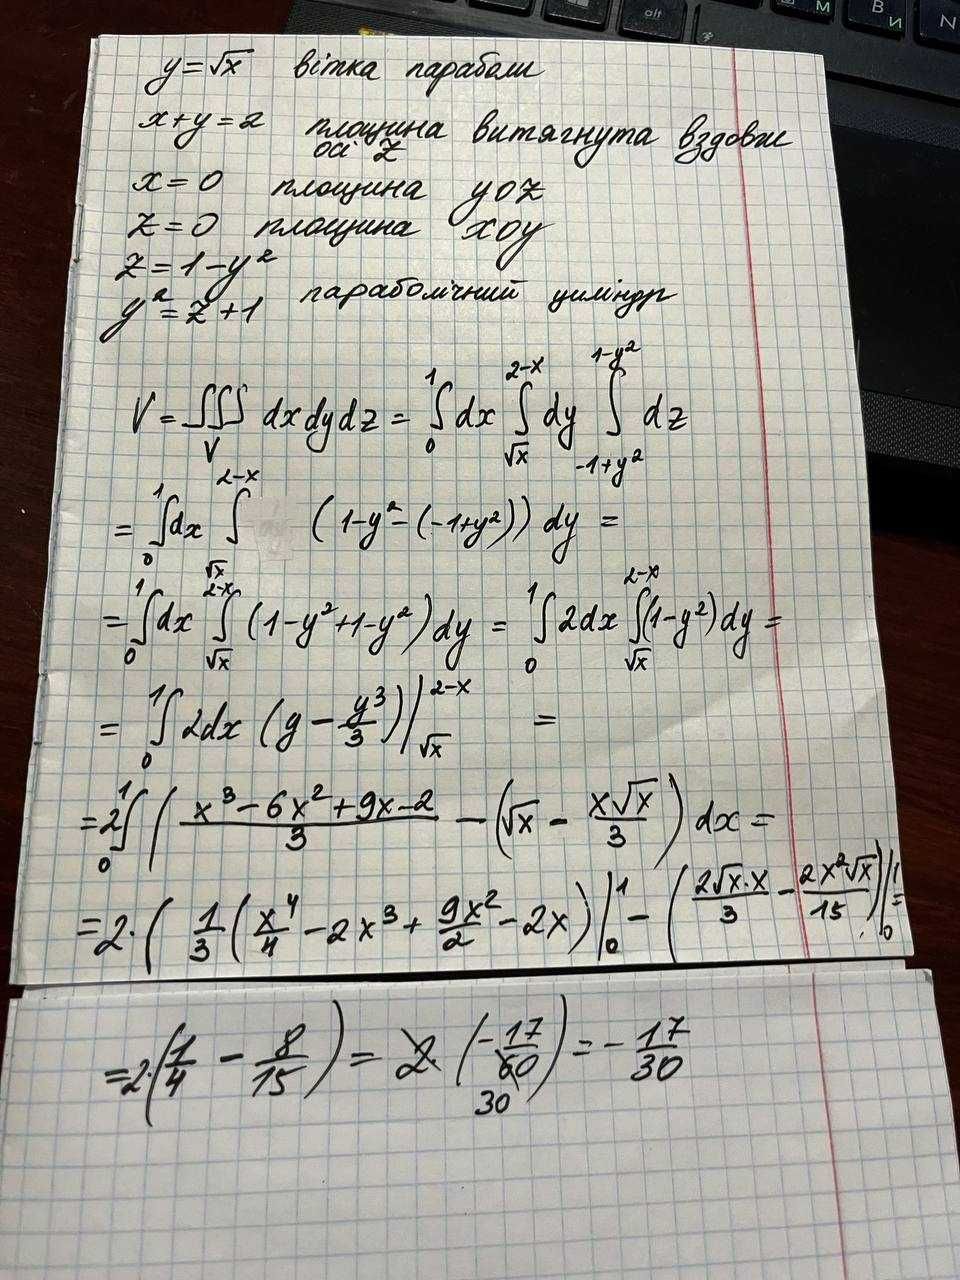 y = √x вітка параболи
x+y=2 площина витягнута вздовж
осі z
x = 0 площина yoz
z = 0 площина xoy
z = 1 - y²
y² = z + 1 параболічний циліндр
V = ∫∫∫_V dx dy dz = ∫_0^1 dx ∫_{√x}^{2-x} dy ∫_{-1+y²}^{1-y²} dz
= ∫_0^1 dx ∫_{√x}^{2-x} (1-y²-(-1+y²)) dy =
= ∫_0^1 dx ∫_{√x}^{2-x} (1-y²+1-y²) dy = ∫_0^1 2dx ∫_{√x}^{2-x} (1-y²) dy =
= ∫_0^1 2dx (y - y³/3)|_{√x}^{2-x} =
= 2∫_0^1 ( (x³-6x²+9x-2)/3 - (√x - x√x/3) dx =
= 2·( 1/3 (x⁴/4 - 2x³ + 9x²/2 - 2x)|_0^1 - (2√x·x/3 - 2x²√x/15)|_0^1 =
= 2·(1/4 - 8/15) = 2·(-17/60) = -17/30
30